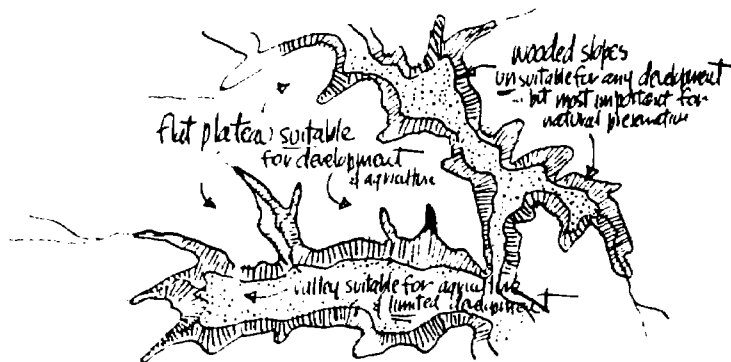 wooded slopes
unsuitable for any development
- but most important for
natural preservation
flat plateau suitable
for development
& agriculture
valley suitable for agriculture
& limited development